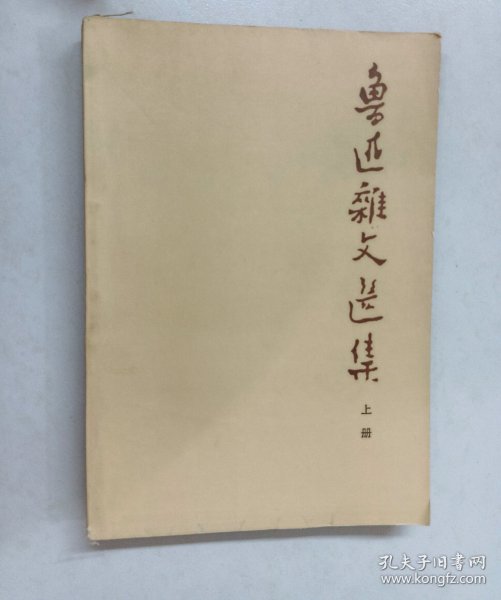 鲁迅雜文选集
上册
孔夫子旧书网
www.kongfz.com